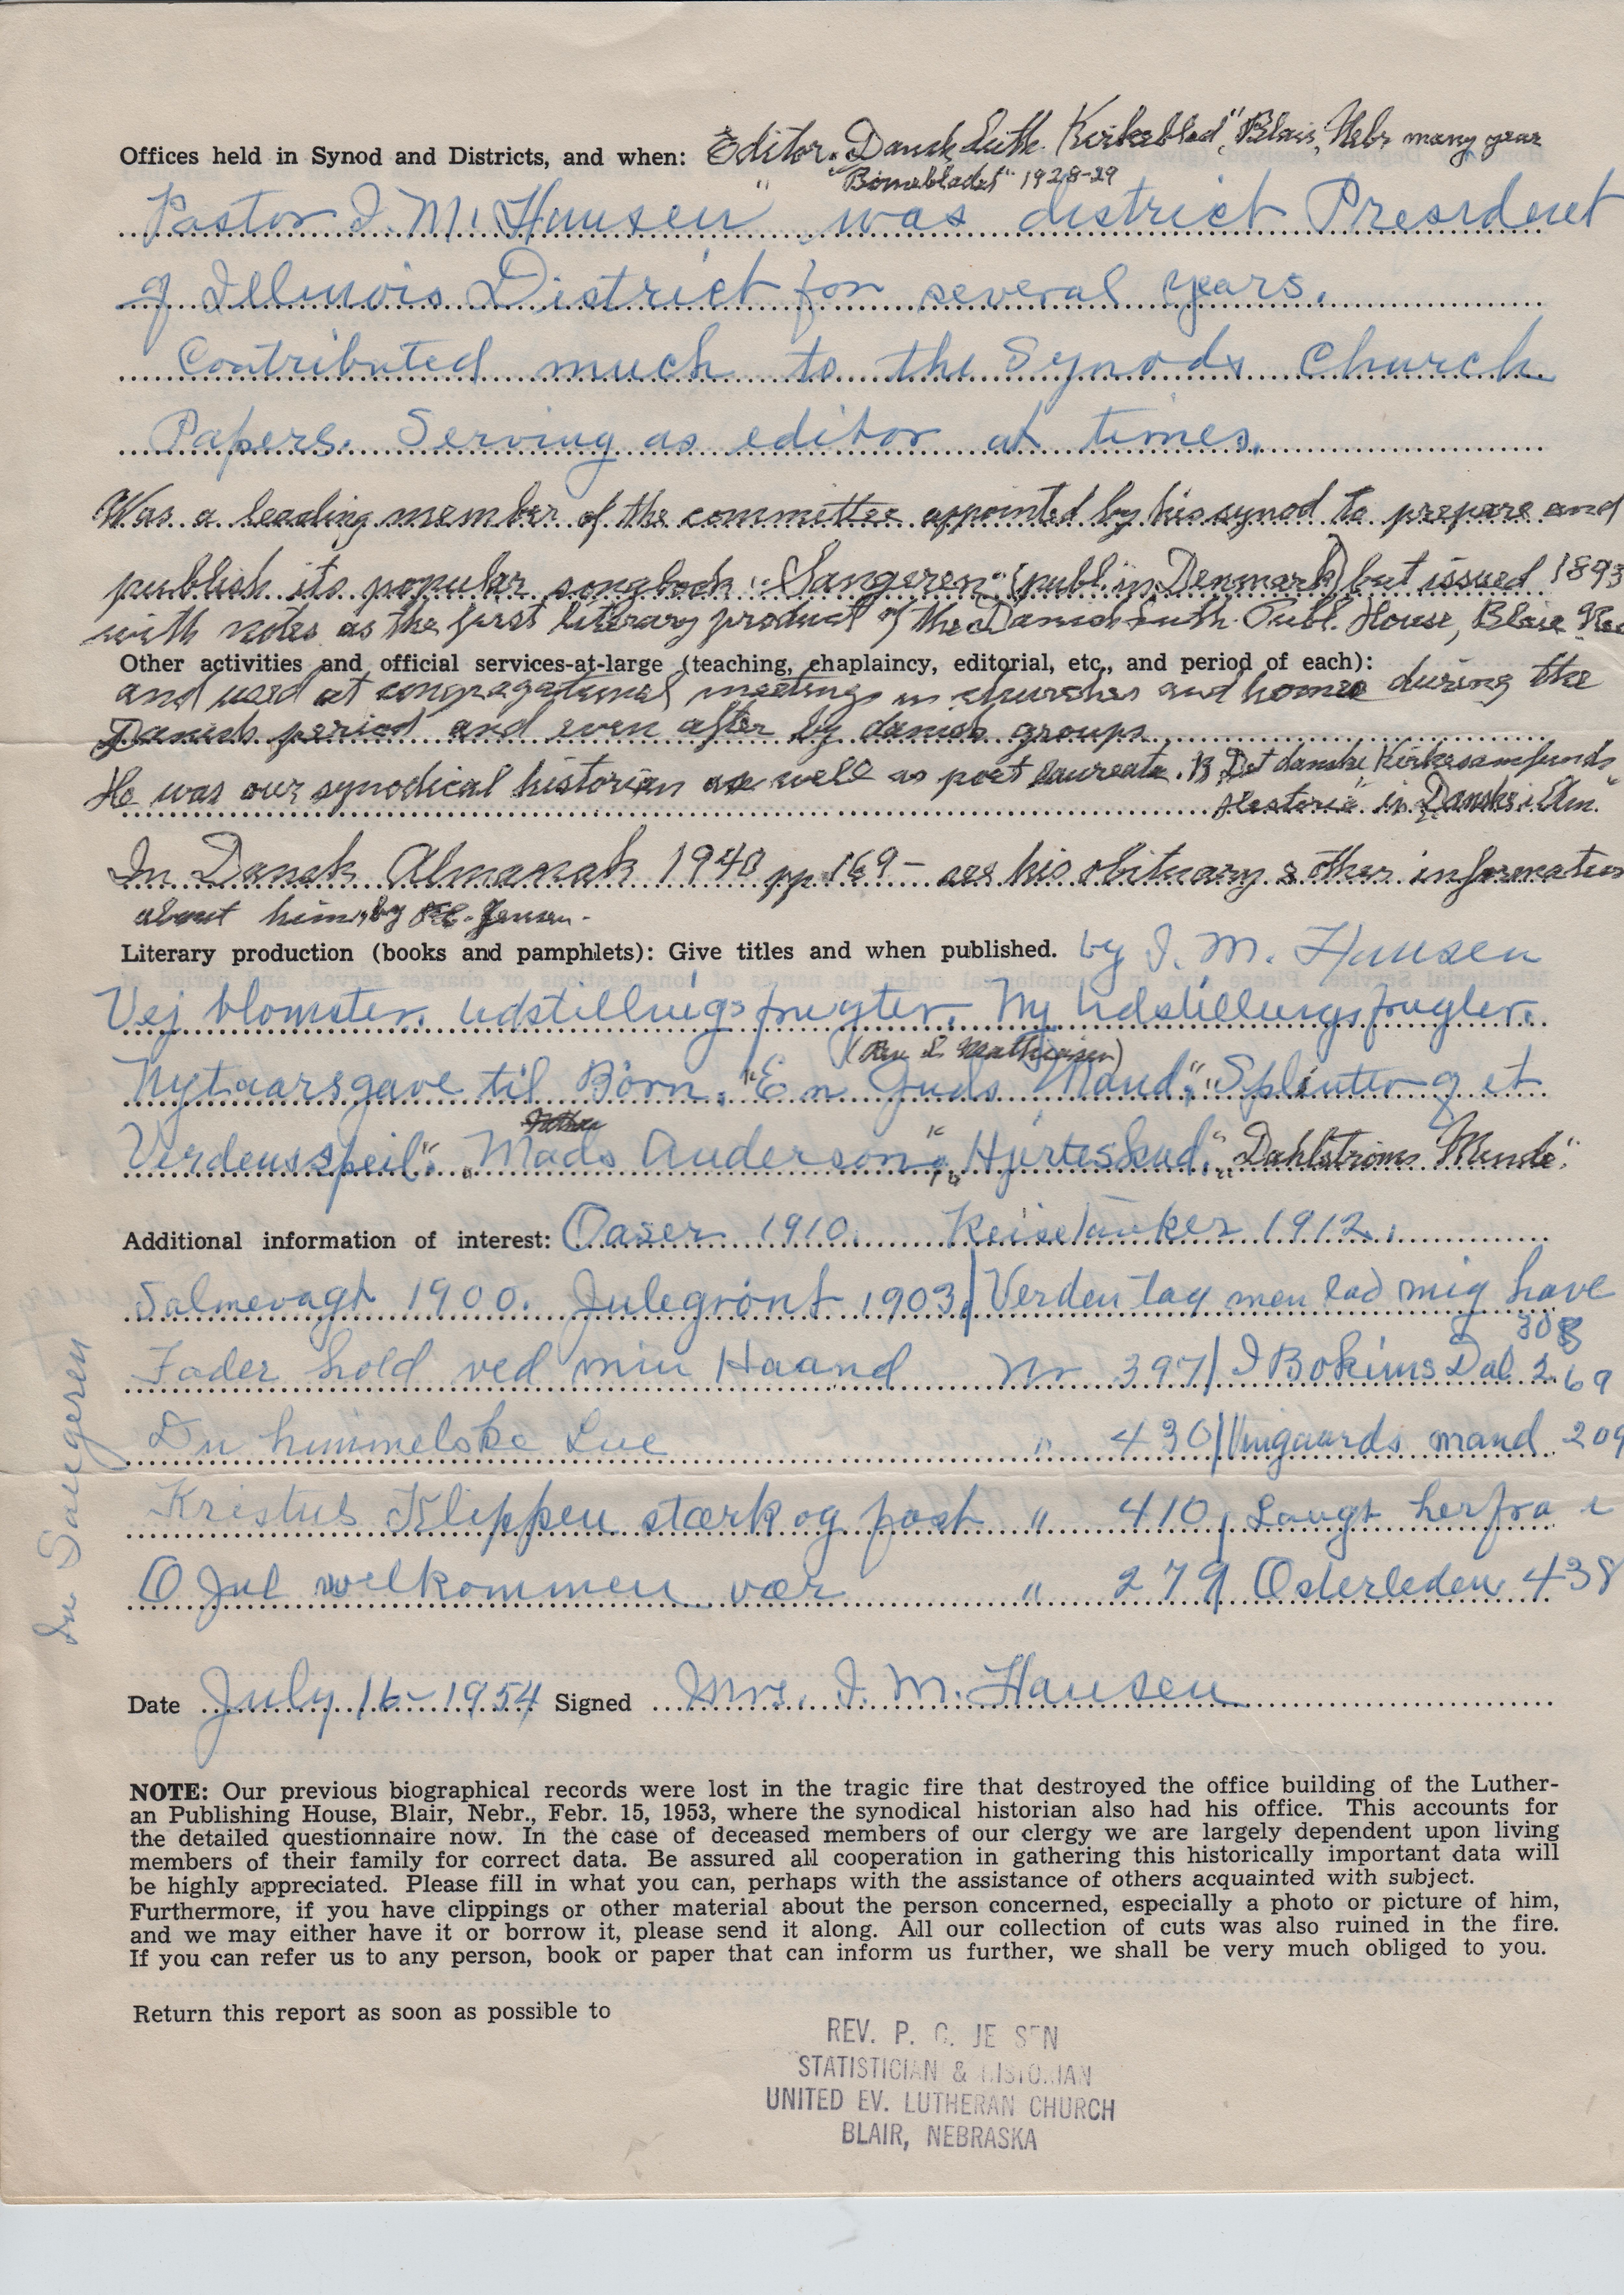 Offices held in Synod and Districts, and when: Editor "Dansk Luth. Kirkeblad", Blair, Nebr many year
" "Børnebladet" 1928-29
Pastor I. M. Hansen was district President
of Illinois District for several years.
Contributed much to the Synods Church
Papers. Serving as editor at times.
Was a leading member of the committee appointed by his synod to prepare and
publish its popular songbook "Sangeren" (publ. in Denmark) but issued 1893
with notes as the first literary product of the Danish Luth. Publ. House, Blair
Other activities and official services-at-large (teaching, chaplaincy, editorial, etc., and period of each):
and used at congregational meetings in churches and homes during the
Danish period and even after by danish groups
He was our synodical historian as well as poet laureate. "Det danske Kirkesamfunds
Historie" in Danske i Am."
In Dansk Almanak 1940 pp. 169- see his obituary & other information
about him, by P.C. Jensen.
Literary production (books and pamphlets): Give titles and when published. by I. M. Hansen
Vej blomster. Udstillings frugter. Ny Udstillingsfrugter.
(Rev. Mathiesen)
Nytaarsgave til Børn. "En Guds Mand", "Splinter of et
Verdensspeil". "Mads Anderson", "Hjerteskud", "Dahlstrøms Minde".
Additional information of interest: Oaser 1910. Reisetanker 1912.
Salmevagt 1900. Julegrønt 1903 | Verden tag men lad mig have
308
Fader hold ved min Haand Nr 397 | I Bokims Dal 269
Du himmelske Lue " 430 | Vingaards mand 209
Kristus Klippen stærk og fast " 410, Langt herfra i
O Jul velkommen vær " 279 | Østerleden 438
In Sangeren
Date July 16- 1954 Signed Mrs. I. M. Hansen
NOTE: Our previous biographical records were lost in the tragic fire that destroyed the office building of the Luther-
an Publishing House, Blair, Nebr., Febr. 15, 1953, where the synodical historian also had his office. This accounts for
the detailed questionnaire now. In the case of deceased members of our clergy we are largely dependent upon living
members of their family for correct data. Be assured all cooperation in gathering this historically important data will
be highly appreciated. Please fill in what you can, perhaps with the assistance of others acquainted with subject.
Furthermore, if you have clippings or other material about the person concerned, especially a photo or picture of him,
and we may either have it or borrow it, please send it along. All our collection of cuts was also ruined in the fire.
If you can refer us to any person, book or paper that can inform us further, we shall be very much obliged to you.
Return this report as soon as possible to
REV. P. C. JENSEN
STATISTICIAN & HISTORIAN
UNITED EV. LUTHERAN CHURCH
BLAIR, NEBRASKA